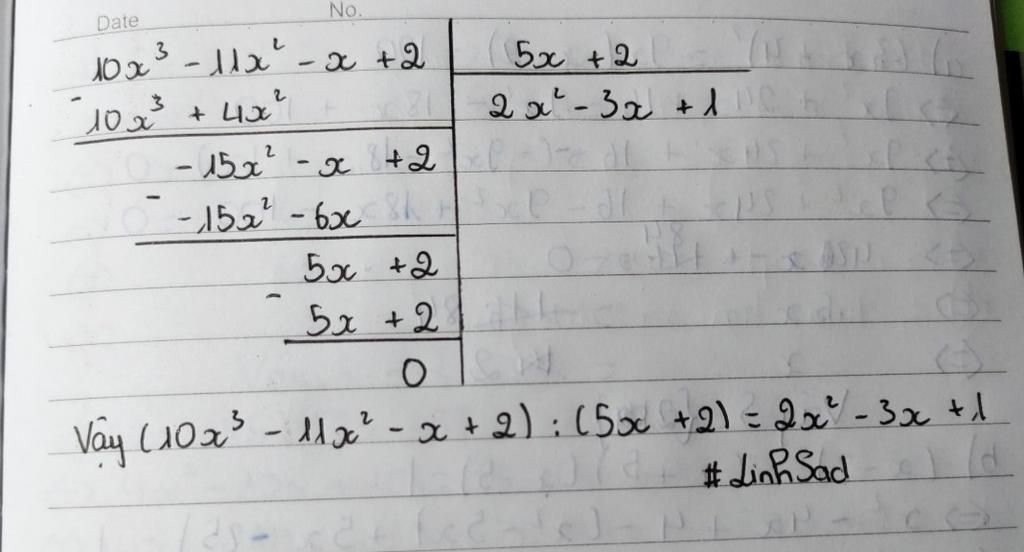 Date No.
10x³ - 11x² - x + 2 5x + 2
- 10x³ + 4x² 2x² - 3x + 1
- 15x² - x + 2
- - 15x² - 6x
5x + 2
- 5x + 2
0
Vậy (10x³ - 11x² - x + 2) : (5x + 2) = 2x² - 3x + 1
# LinhSad